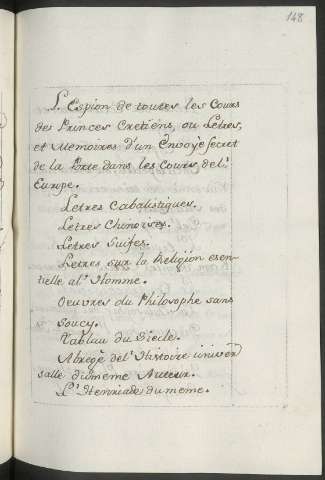 148
L'Espion de toutes les Cours
des Princes Cretiens, ou Letres,
et Memoires d'un Envoyè secret
de la Porte dans les Cours de l'
Europe.
Letres Cabalistiques.
Letres Chinoises.
Letres Suises.
Letres sur la Religion esen-
tielle a l'Homme.
Oeuvres du Philosophe sans
Soucy.
Tablau du Siecle.
Abregè del'Histoire univer
salle dumeme Auteur.
L'Henriade du meme.